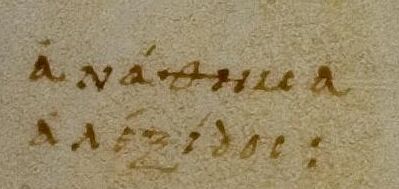 ἀνάθημα
ἀλέξιδος: